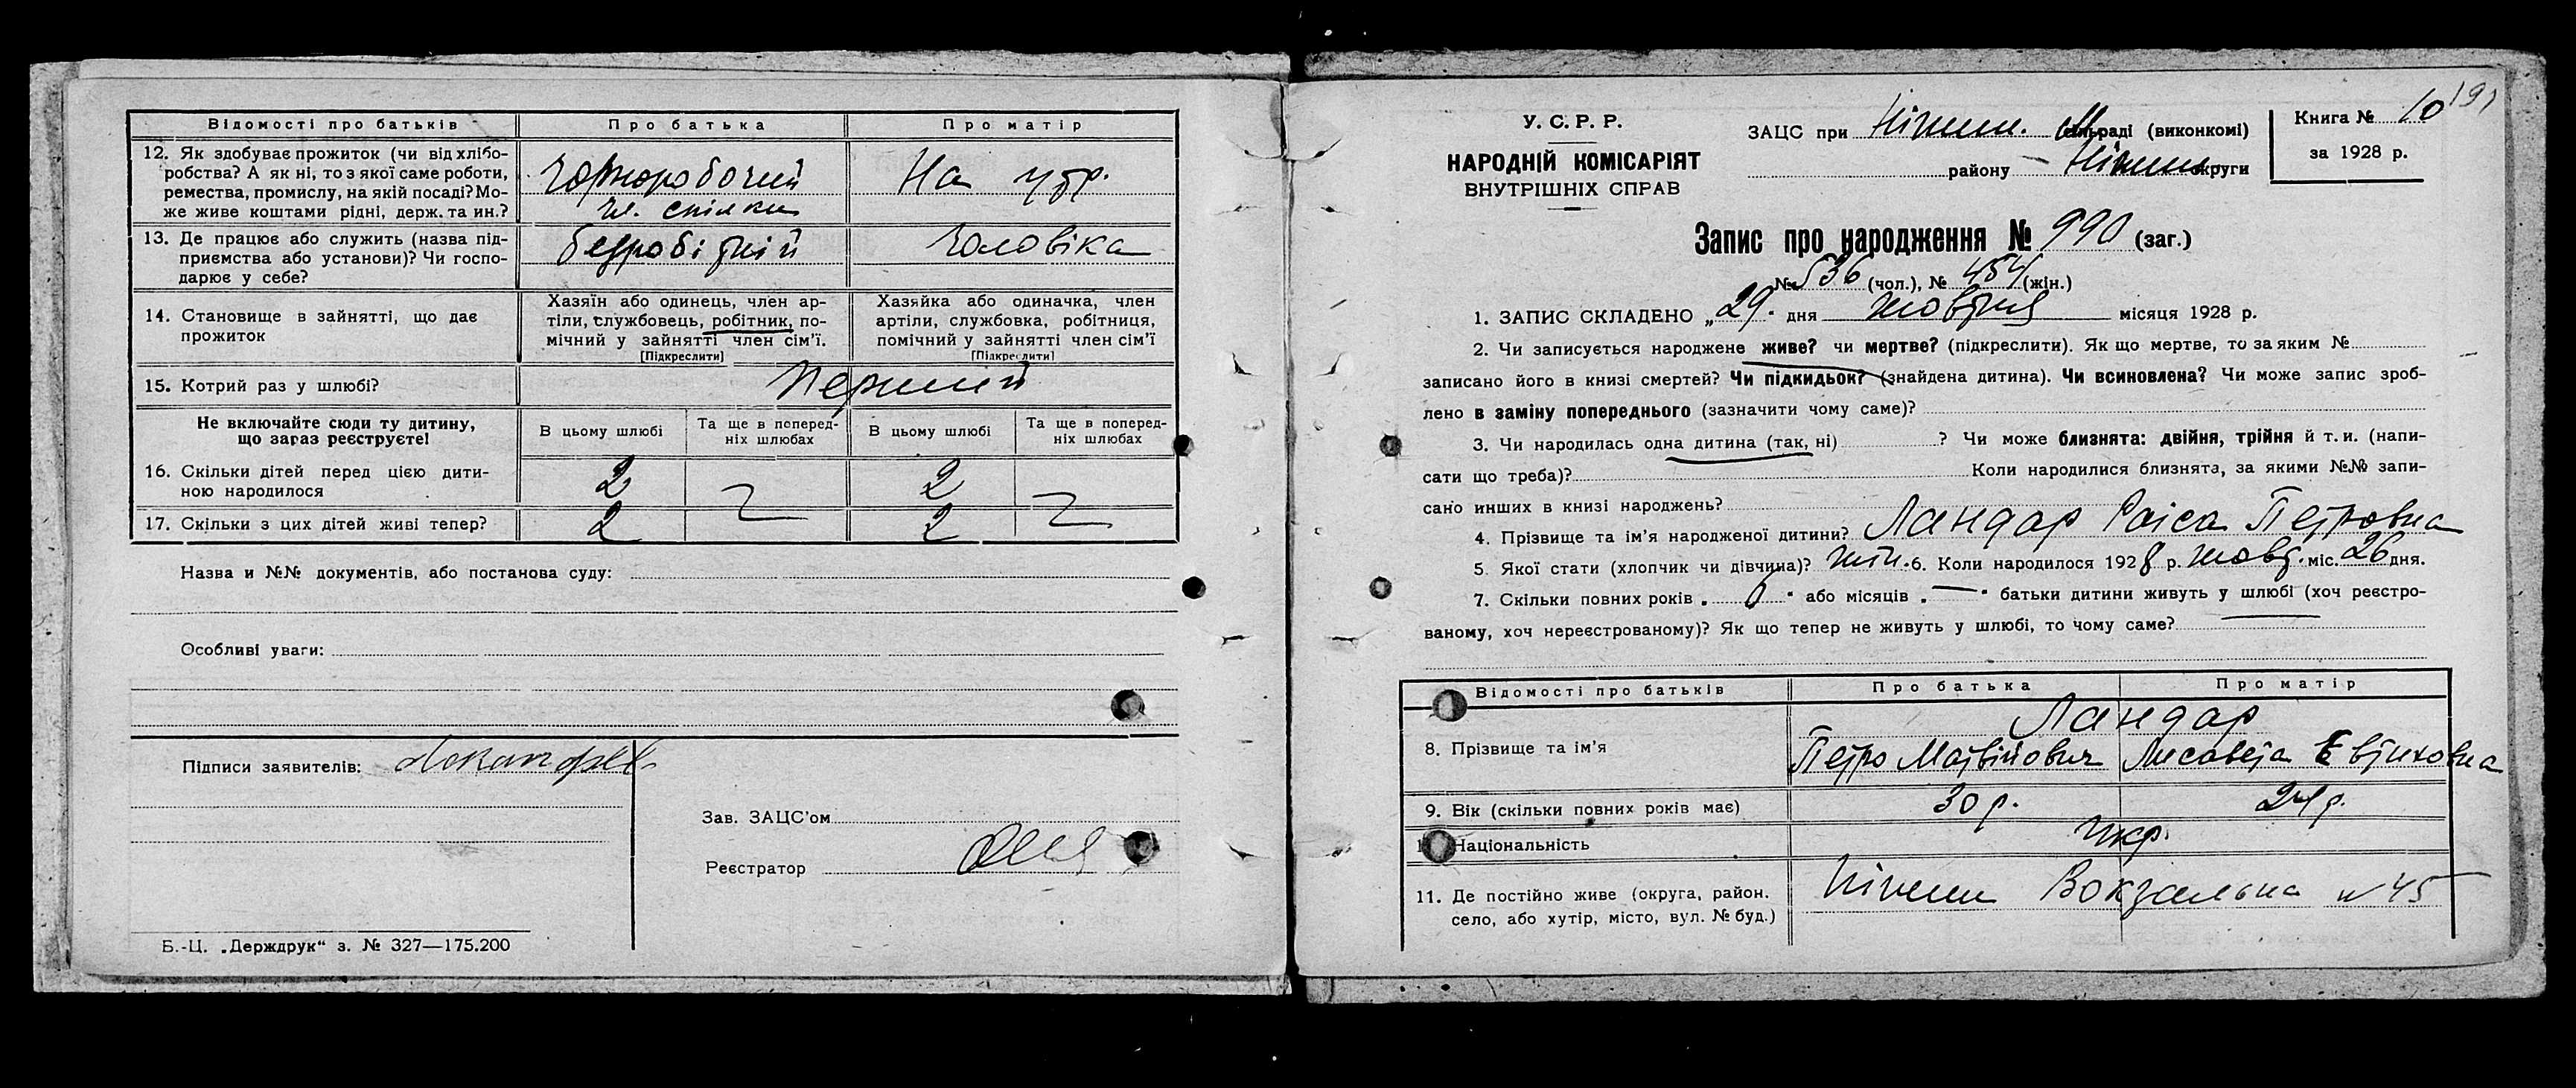 Відомості про батьків Про батька Про матір
12. Як здобуває прожиток (чи від хлібо-
робства? А як ні, то з якої саме роботи,
ремества, промислу, на якій посаді? Мо-
же живе коштами рідні, держ. та ин.?
Чорноробочий
чл. спілки
На утр.
13. Де працює або служить (назва під-
приємства або установи)? Чи госпо-
дарює у себе?
безробітній
Чоловіка
14. Становище в зайнятті, що дає
прожиток
Хазяїн або одинець, член ар-
тілі, службовець, робітник, по-
мічний у зайнятті член сім'ї.
[Підкреслити]
Хазяйка або одиначка, член
артілі, службовка, робітниця,
помічний у зайнятті член сім'ї
[Підкреслити]
15. Котрий раз у шлюбі? Перший
Не включайте сюди ту дитину,
що зараз реєструєте!
В цьому шлюбі
Та ще в поперед-
ніх шлюбах
В цьому шлюбі
Та ще в поперед-
ніх шлюбах
16. Скільки дітей перед цією дити-
ною народилося
2 2
17. Скільки з цих дітей живі тепер? 2 2
Назва и №№ документів, або постанова суду:
Особливі уваги:
Підписи заявителів:
Зав. ЗАЦС'ом
Реєстратор
Б.-Ц. „Держдрук“ з. № 327—175.200
191
У. С. Р. Р.
НАРОДНІЙ КОМІСАРІЯТ
ВНУТРІШНІХ СПРАВ
ЗАЦС при Ніжин. М раді (виконкомі)
району — Ніжин округи
Книга № 10
за 1928 р.
Запис про народження № 990 (заг.)
№ 536 (чол.), № 454 (жін.)
1. ЗАПИС СКЛАДЕНО „29. дня жовтня місяця 1928 р.
2. Чи записується народжене живе? чи мертве? (підкреслити). Як що мертве, то за яким №
записано його в книзі смертей? Чи підкидьок? (знайдена дитина). Чи всиновлена? Чи може запис зроб-
лено в заміну попереднього (зазначити чому саме)?
3. Чи народилась одна дитина (так, ні) ? Чи може близнята: двійня, трійня й т. и. (напи-
сати що треба)? Коли народилися близнята, за якими №№ запи-
сано инших в книзі народжень?
4. Прізвище та ім'я народженої дитини? Ландар Раіса Петровна
5. Якої стати (хлопчик чи дівчина)? жін. 6. Коли народилося 1928 р. жовт. міс. 26 дня.
7. Скільки повних років „ 6 “ або місяців „ — “ батьки дитини живуть у шлюбі (хоч реєстро-
ваному, хоч нереєстрованому)? Як що тепер не живуть у шлюбі, то чому саме?
Відомості про батьків Про батька Про матір
8. Прізвище та ім'я
Ландар
Петро Матвійович Лисавета Евтиховна
9. Вік (скільки повних років має) 30 р. 24 р.
Національність Укр.
11. Де постійно живе (округа, район.
село, або хутір, місто, вул. № буд.)
Ніжин Вокзальна № 45